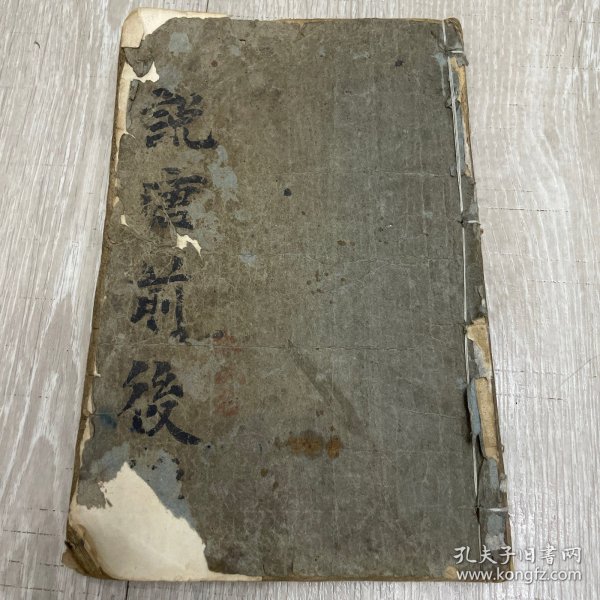 說唐前後
孔夫子旧书网
www.kongfz.com